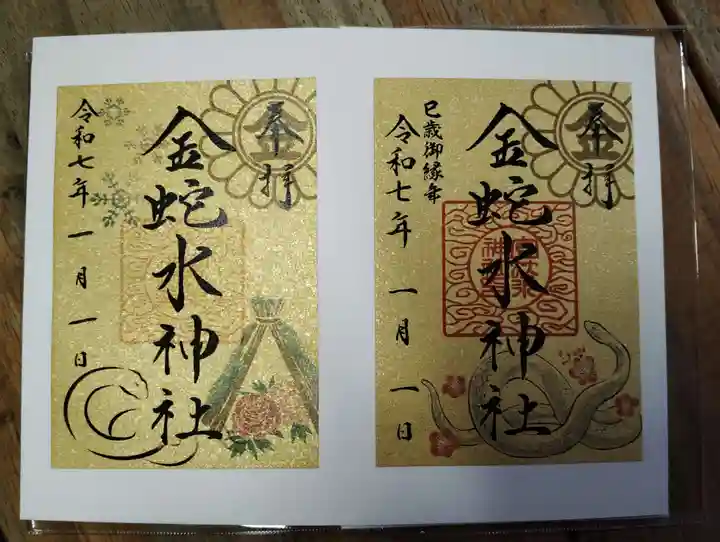 奉拝
金
金蛇水神社
巳歳御縁年
令和七年 一月 一日
奉拝
金
金蛇水神社
令和七年 一月 一日